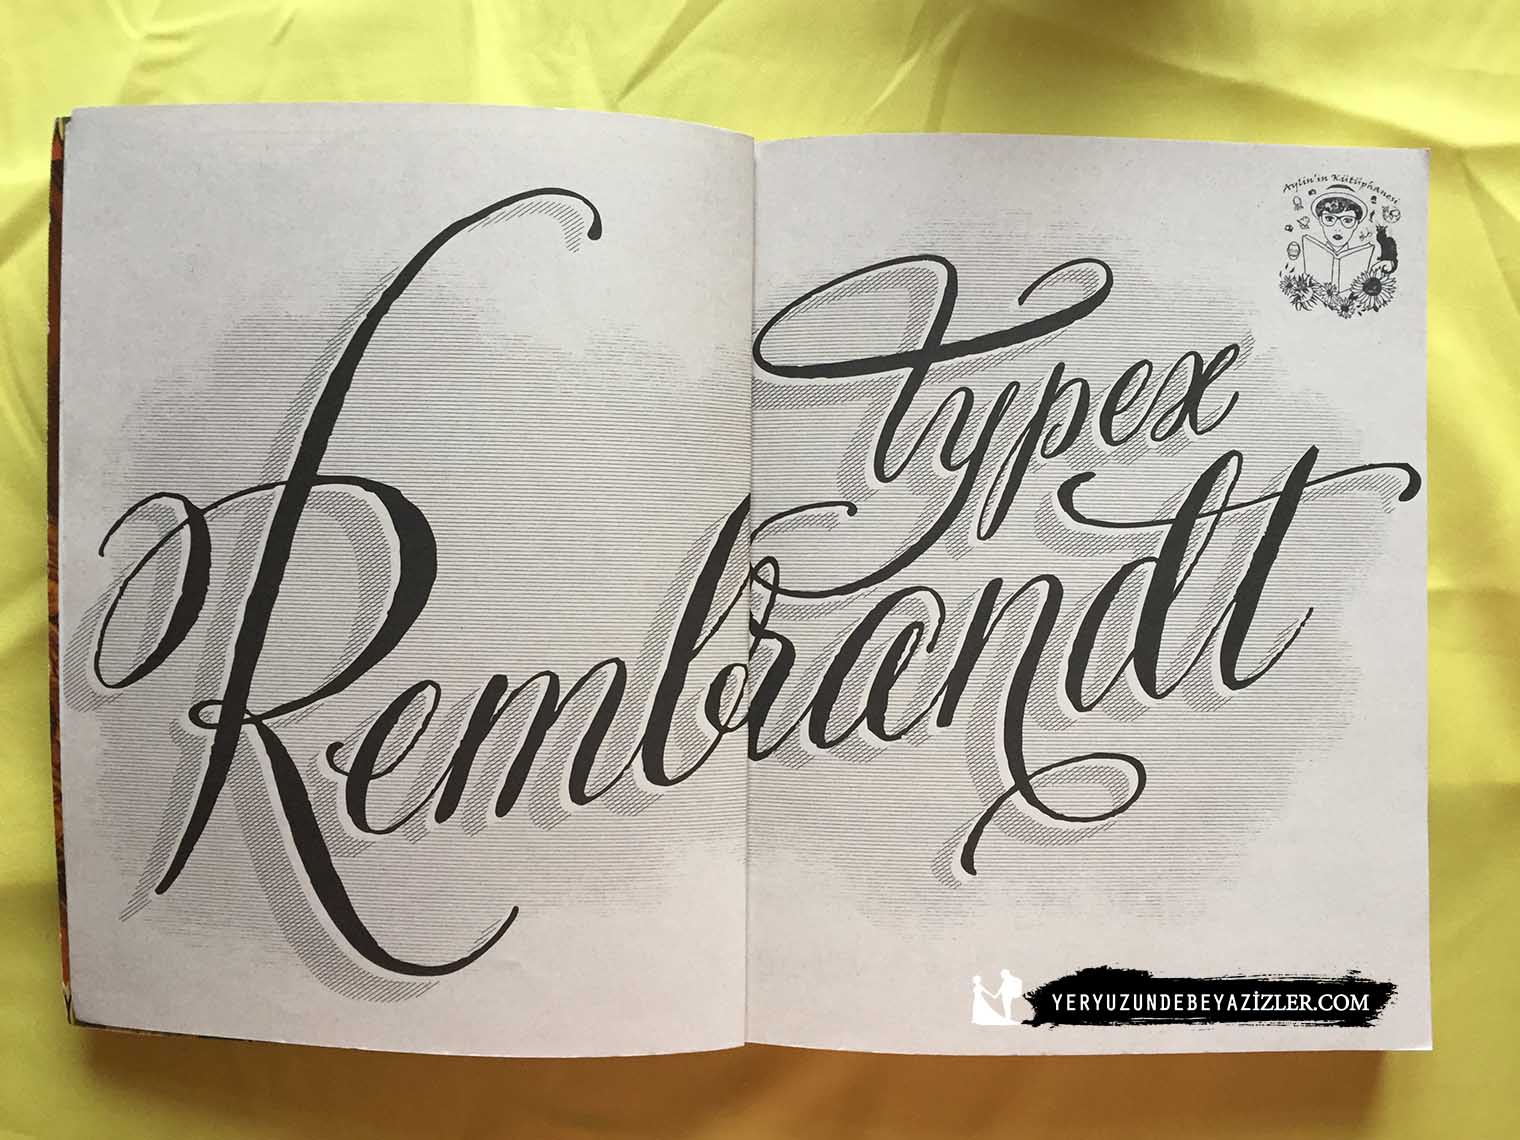 Aylin'in Kütüphanesi
Typex
Rembrandt
YERYUZUNDEBEYAZİZLER.COM